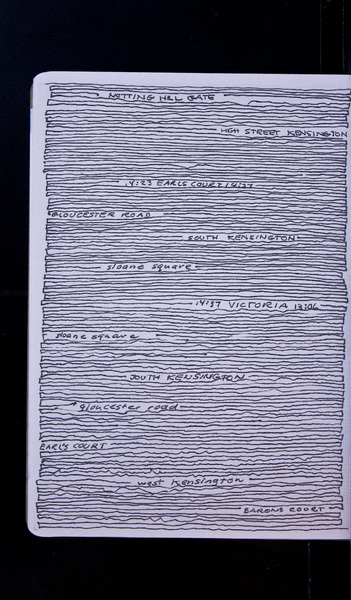 NOTTING HILL GATE
HIGH STREET KENSINGTON
14:23 EARLS COURT 14:27
GLOUCESTER ROAD
SOUTH KENSINGTON
sloane square
14:37 VICTORIA 13:06
sloane square
SOUTH KENSINGTON
gloucester road
EARL'S COURT
west kensington
BARONS COURT